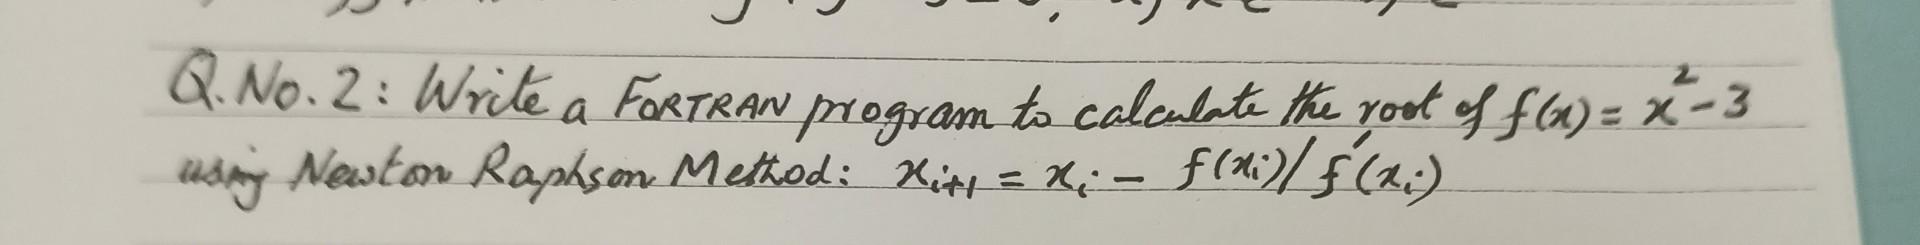 Q.No.2: Write a FORTRAN program to calculate the root of f(x) = x² - 3
using Newton Raphson Method: xᵢ₊₁ = xᵢ - f(xᵢ)/f′(xᵢ)